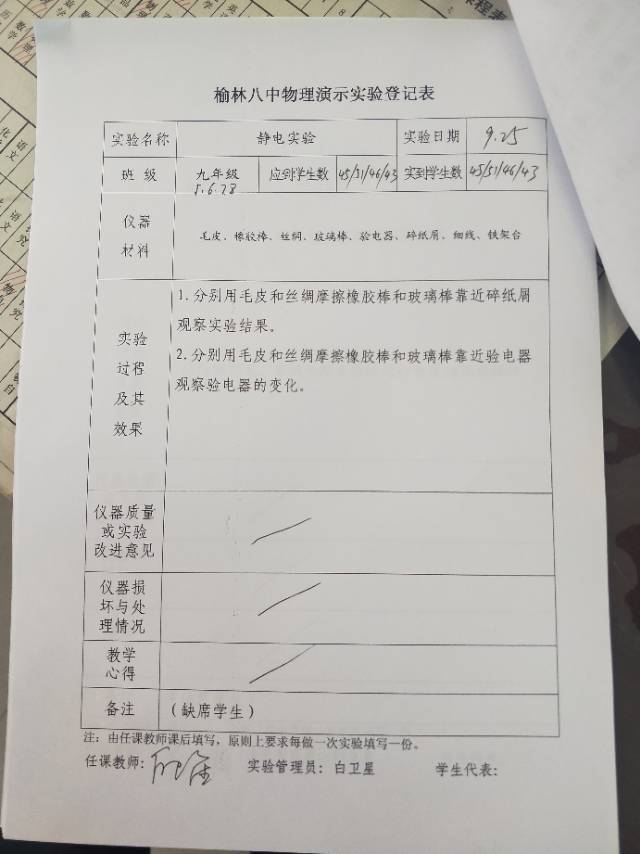 榆林八中物理演示实验登记表
实验名称 静电实验 实验日期 9.25
班 级 九年级 应到学生数 45/51/46/43 实到学生数 45/51/46/43
5.6.7.8
仪器
材料
毛皮、橡胶棒、丝绸、玻璃棒、验电器、碎纸屑、细线、铁架台
实验
过程
及其
效果
1.分别用毛皮和丝绸摩擦橡胶棒和玻璃棒靠近碎纸屑
观察实验结果。
2.分别用毛皮和丝绸摩擦橡胶棒和玻璃棒靠近验电器
观察验电器的变化。
仪器质量
或实验
改进意见
仪器损
坏与处
理情况
教学
心得
备注 (缺席学生)
注：由任课教师课后填写，原则上要求每做一次实验填写一份。
任课教师： 实验管理员：白卫星 学生代表：